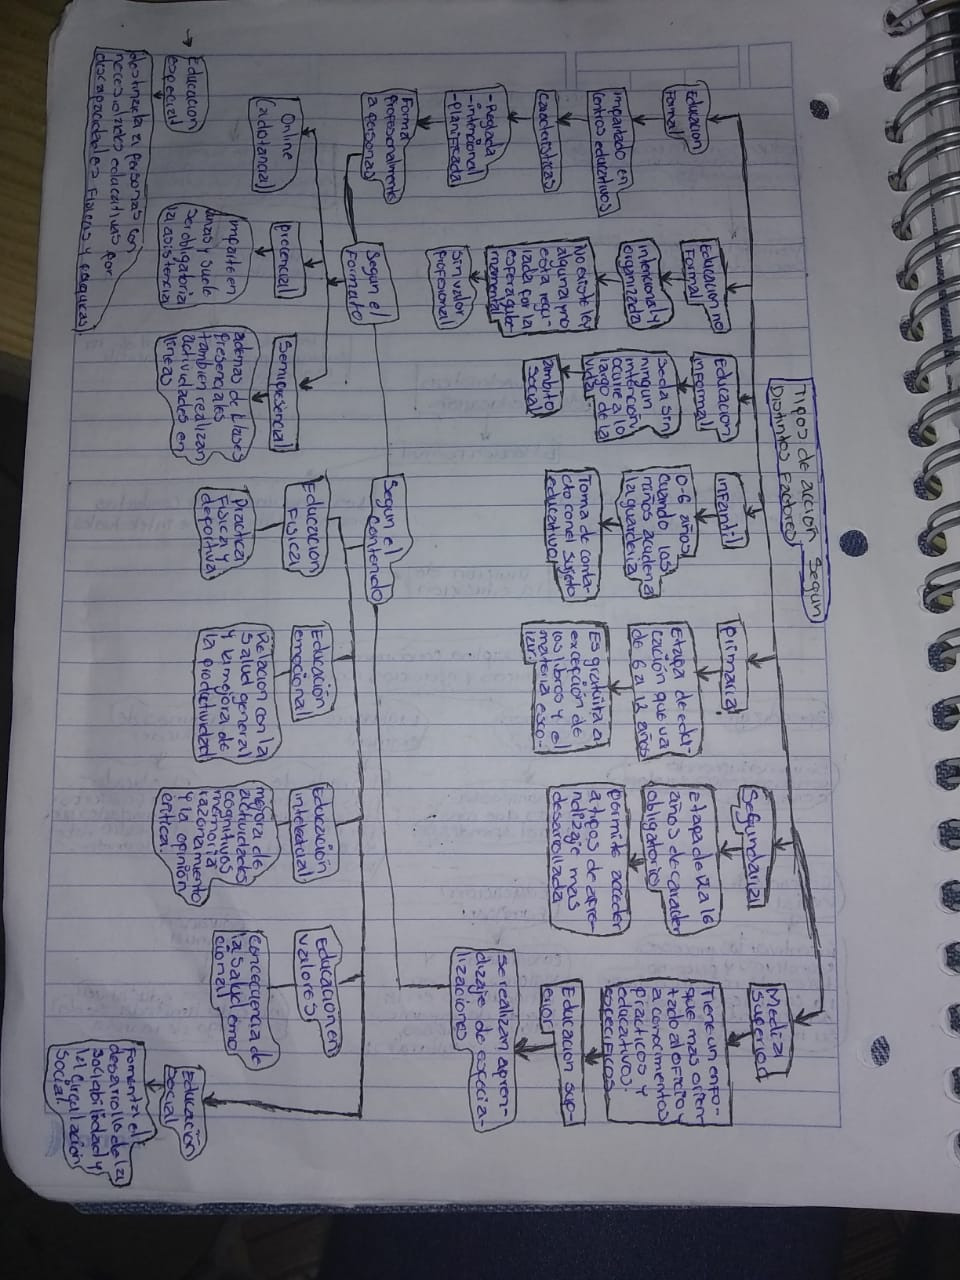 Tipos de acción Segun
Distintos Factores
Educacion
Formal
Impartado en
Centros educativos
Caracteristicas
-Reglada
-intencional
-planificada
Forma
Profesionalmente
a personas
Educacion no
Formal
intencional y
organizada
No existe ley
alguna y no
esta regu-
lada por la
esfera guber-
namental
Sin valor
profesional
Educacion
informal
Se da sin
ningun
intención,
ocurre a lo
largo de la
vida.
ámbito
Social
infantil
0-6 años
cuando los
niños acuden a
la guarderia
Toma de conta-
cto con el sujeto
educativo
primaria
Etapa de edu-
cación que va
de 6 a 12 años
Es gratuita a
excepción de
los libros y el
material esco-
lar
Segundaria
Etapa de 12 a 16
años de caracter
obligatorio
permite acceder
a tipos de apre-
ndizaje mas
desarrollada
Media
Superior
Tiene un enfo-
que mas orien-
tado al oficio y
a conocimientos
practicos y
educativos
especificos
Educacion sup-
erior
Se realizan apren-
dizaje de especia-
lizaciones
Segun el
Formato
Online
(adistancia)
precencial
imparte en
aunas y suele
ser obligatoria
la asistencia
Semipresencial
ademas de clases
presenciales
tambien realizan
actividades en
lineas
Educacion
especial
destinada a personas con
necesidades educativas por
descapacidades Fisicas y psiquicas.
Segun el
Contenido
Educacion
Fisica
Practica
Fisica y
deportiva
Educación
emocional
Relacion con la
Salud general
y la mejora de
la productividad
Educación
intelectual
mejora de
actividades
cognitivos
memoria
razonamiento
y la opinión
critica.
Educacion en
valores
Concecuencia de
la Salud emo-
cional
Educación
Social
Fomenta el
desarrollo de la
sociabilidad y
la circulación
Social.